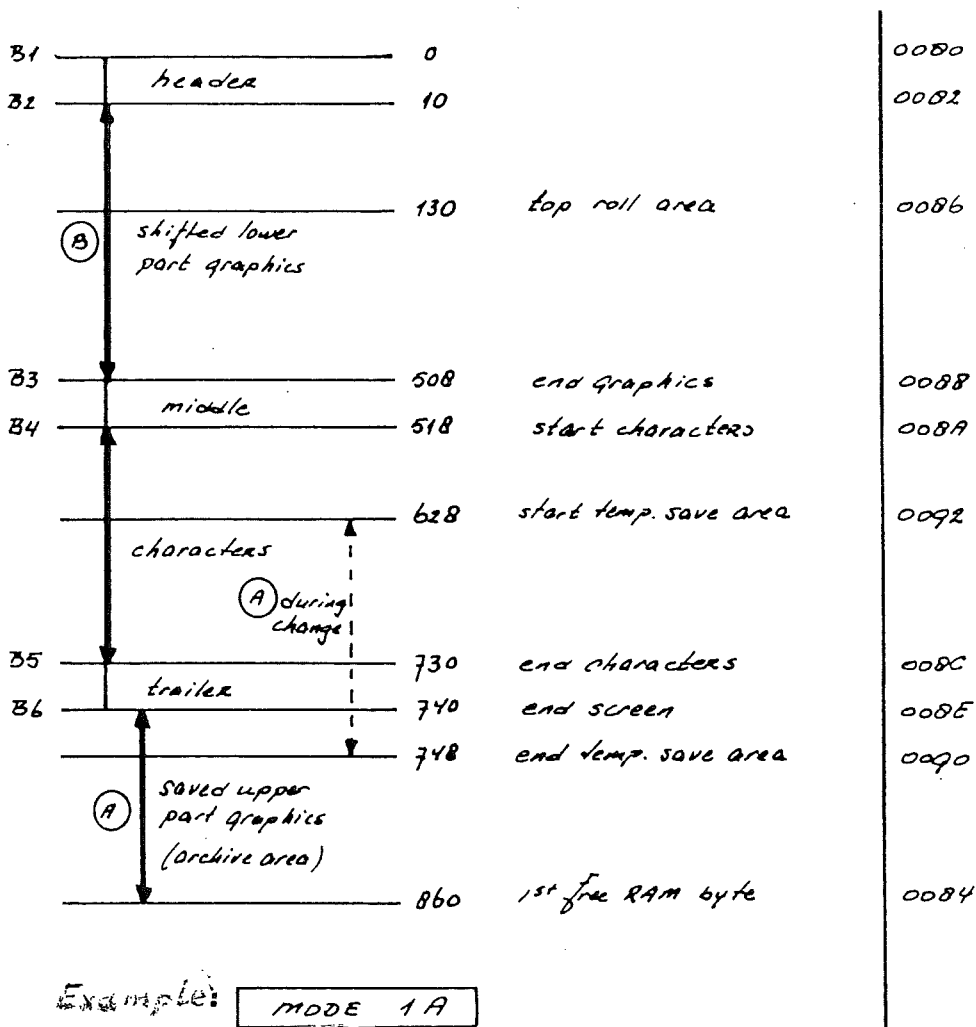 B1 0 0080
header
B2 10 0082
130 top roll area 0086
B shifted lower
part graphics
B3 508 end graphics 0088
middle
B4 518 start characters 008A
628 start temp. save area 0092
characters
A during
change
B5 730 end characters 008C
trailer
B6 740 end screen 008E
748 end temp. save area 0090
saved upper
A part graphics
(archive area)
860 1st free RAM byte 0084
Example:
MODE 1A